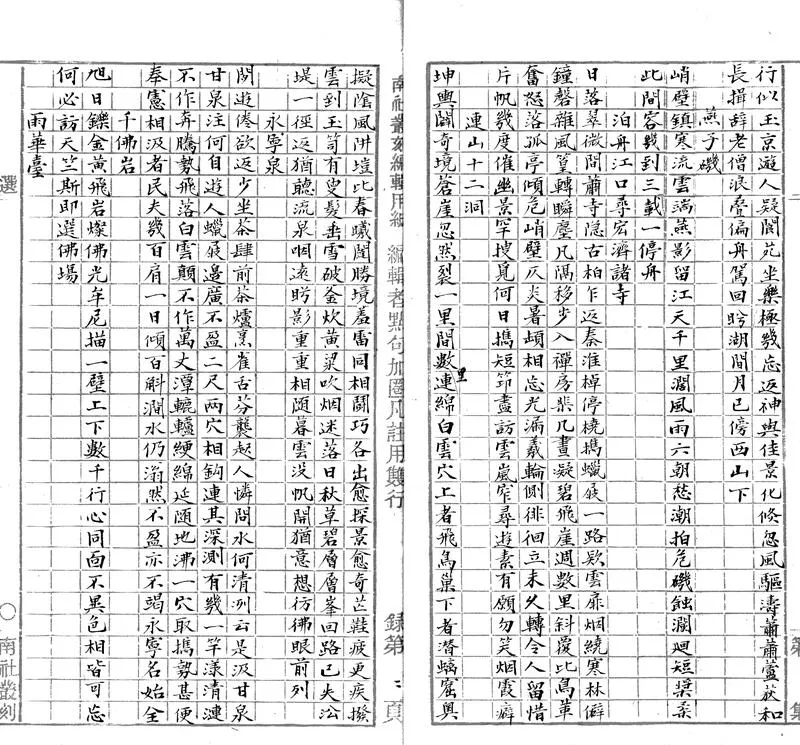 行似玉京遊人疑閬苑坐樂極幾忘返神與佳景化倏忽風驅濤蕭蕭蘆荻和
長揖辞老僧浪叠偏舟駕回盻湖間月已傍西山下
燕子磯
峭壁鎮寒流雲端燕影留江天千里濶風雨六朝愁潮拍危磯蝕瀾廻短槳柔
此間容幾到三載一停舟
泊舟江口尋宏濟諸寺
日落翠微間蕭寺隐古柏乍返秦淮棹停橈携蠟屐一路欵雲扉烟繞寒林僻
鐘磬雜風篁轉瞬塵凡隔移步入禪房棐几畫凝碧飛崖週數里斜覆比鳥革
奮怒落孤亭傾危峭壁仄炎暑頓相忘光漏羲輪側徘徊立未久轉令人留惜
片帆幾度催幽景罕搜覓何日携短笻盡訪雲嵐窄尋遊素有願勿笑烟霞癖
連山十二洞
坤輿闢奇境蒼崖忽然裂一里間數里連綿白雲穴上者飛鳥巢下者潜螭窟輿
擬陰風阱壒比春曦閣勝境羞雷同相鬬巧各出愈探景愈奇芒鞋疲更疾撥
雲到玉笥有叟髮垂雪破釜炊黄粱吹烟迷落日秋草碧層層峯回路已失沿
堤一徑返猶聽流泉咽遠盻影重重相随暮雲没帆開猶意想彷彿眼前列
永寧泉
閱遊倦欲返少坐茶肆前茶爐烹雀古芬襲起人憐問水何清冽云是汲甘泉
甘泉注何自遊人蠟屐邊廣不盈二尺兩穴相鈎連其深測有幾一竿漾清漣
不作奔騰勢飛落白雲顛不作萬丈潭轆轤綆綿延随地沸一穴取携勢甚便
奉憲相汲者民夫幾百肩一日傾百斛澗水仍滃然不盈亦不竭永寧名始全
千佛岩
旭日鑠金黄飛岩燦佛光牟尼描一壁上下數千行心同面不異色相皆可忘
何必訪天竺斯即選佛場
雨華臺
南社叢刻編輯用紙 編輯者點句加圈凡註用雙行 録第 頁
選
南社叢刻
第 集